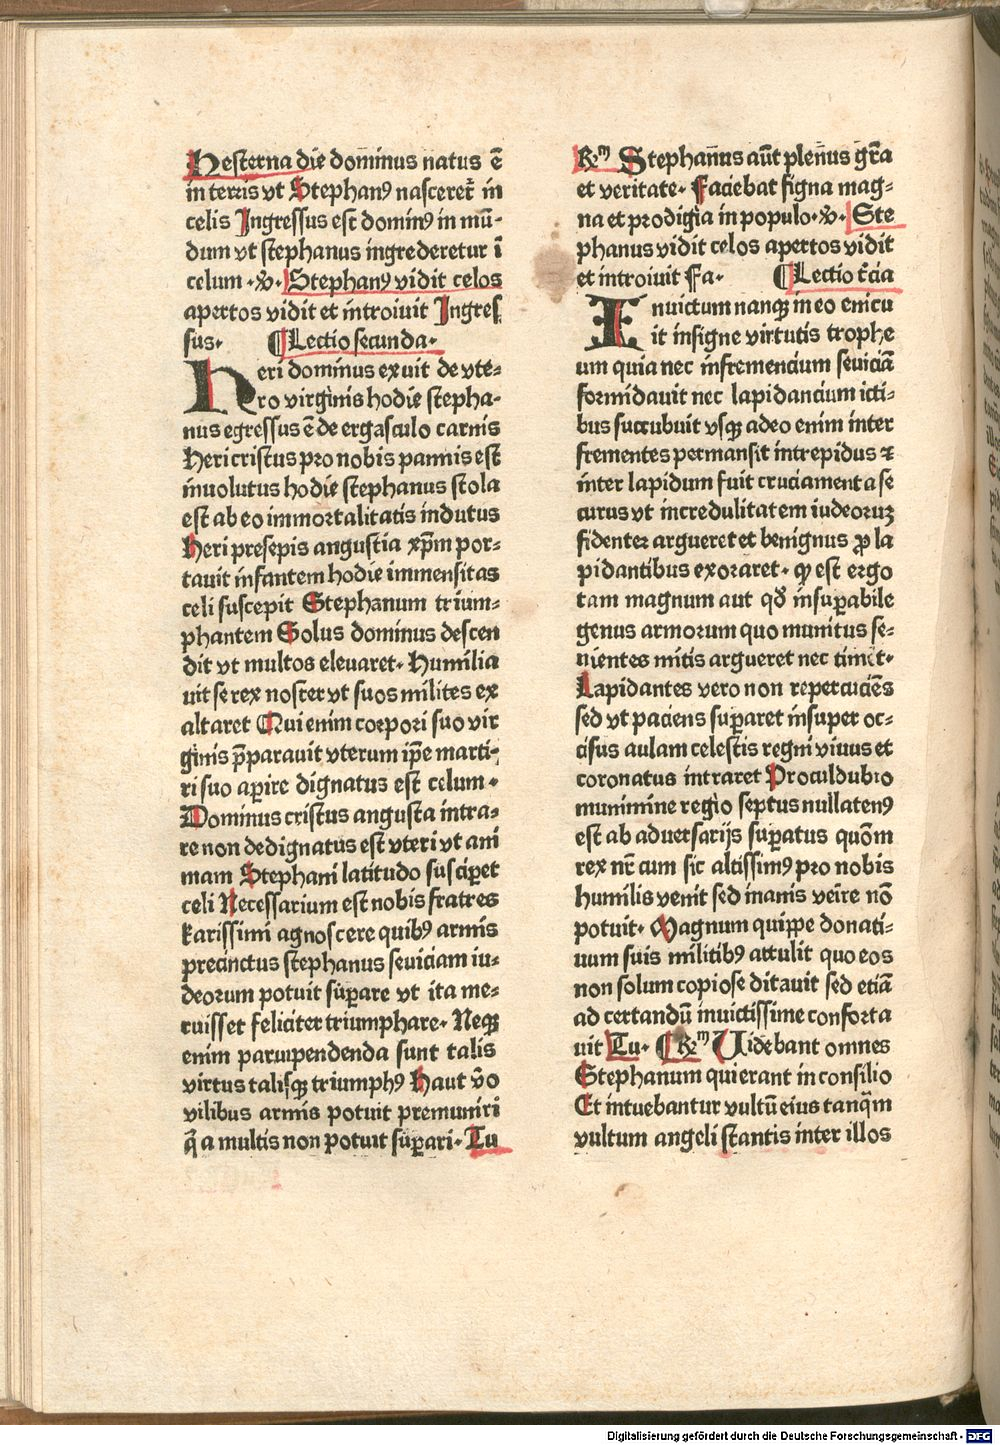 Hesterna die dominus natus ē
in terris vt Stephanꝰ nasceret̄ in
celis Ingressus est dominꝰ in mū-
dum vt stephanus ingrederetur ī
celum .℣. Stephanꝰ vidit celos
apertos vidit et introiuit Ingres
sus. ¶Lectio secunda.
Heri dominus exuit de vte-
ro virginis hodie stepha-
nus egressus ē de ergasculo carnis
Heri cristus pro nobis pannis est
inuolutus hodie stephanus stola
est ab eo immortalitatis indutus
Heri presepis angustia xp̄m por-
tauit infantem hodie immensitas
celi suscepit Stephanum trium-
phantem Solus dominus descen
dit vt multos eleuaret. Humilia
uit se rex noster vt suos milites ex
altaret Qui enim corpori suo vir
ginis p̄parauit vterum ip̄e marti-
ri suo aꝑire dignatus est celum.
Dominus cristus angusta intra-
re non dedignatus est vteri vt ani
mam Stephani latitudo susciꝑet
celi Necessarium est nobis fratres
karissimi agnoscere quibꝰ armis
precinctus stephanus seuiciam iu-
deorum potuit suꝑare vt ita me-
ruisset feliciter triumphare. Neqꝫ
enim paruipendenda sunt talis
virtus talisqꝫ triumphꝰ Haut v̄o
vilibus armis potuit premuniri
q̄ a multis non potuit suꝑari. Tu
R̄m Stephanus aūt plenus gr̄a
et veritate. Faciebat signa mag-
na et prodigia in populo.℣. Ste
phanus vidit celos apertos vidit
et introiuit Fa. ¶Lectio t̄cia
Inuictum nanqꝫ in eo enicu
it insigne virtutis trophe
um quia nec infremencium seuiciā
formidauit nec lapidancium icti-
bus succubuit vsqꝫ adeo enim inter
frementes permansit intrepidus ⁊
inter lapidum fuit cruciamenta se
curus vt incredulitatem iudeoruꝫ
fidenter argueret et benignus ꝓ la
pidantibus exoraret. qͥ est ergo
tam magnum aut qd̄ insuꝑabile
genus armorum quo munitus se-
uientes mitis argueret nec timet.
Lapidantes vero non repercuciēs
sed vt paciens suꝑaret insuper oc-
cisus aulam celestis regni viuus et
coronatus intraret Proculdubio
munimine regio septus nullatenꝰ
est ab aduersarijs suꝑatus quō̄m
rex nr̄ cum sic altissimꝰ pro nobis
humilis venit sed inanis veīre nō
potuit. Magnum quippe donati-
uum suis militibꝰ attulit quo eos
non solum copiose ditauit sed etiā
ad certandū inuictissime conforta
uit Tu. ¶R̄m Uidebant omnes
Stephanum qui erant in consilio
Et intuebantur vultū eius tanqͣm
vultum angeli stantis inter illos
Digitalisierung gefördert durch die Deutsche Forschungsgemeinschaft - DFG